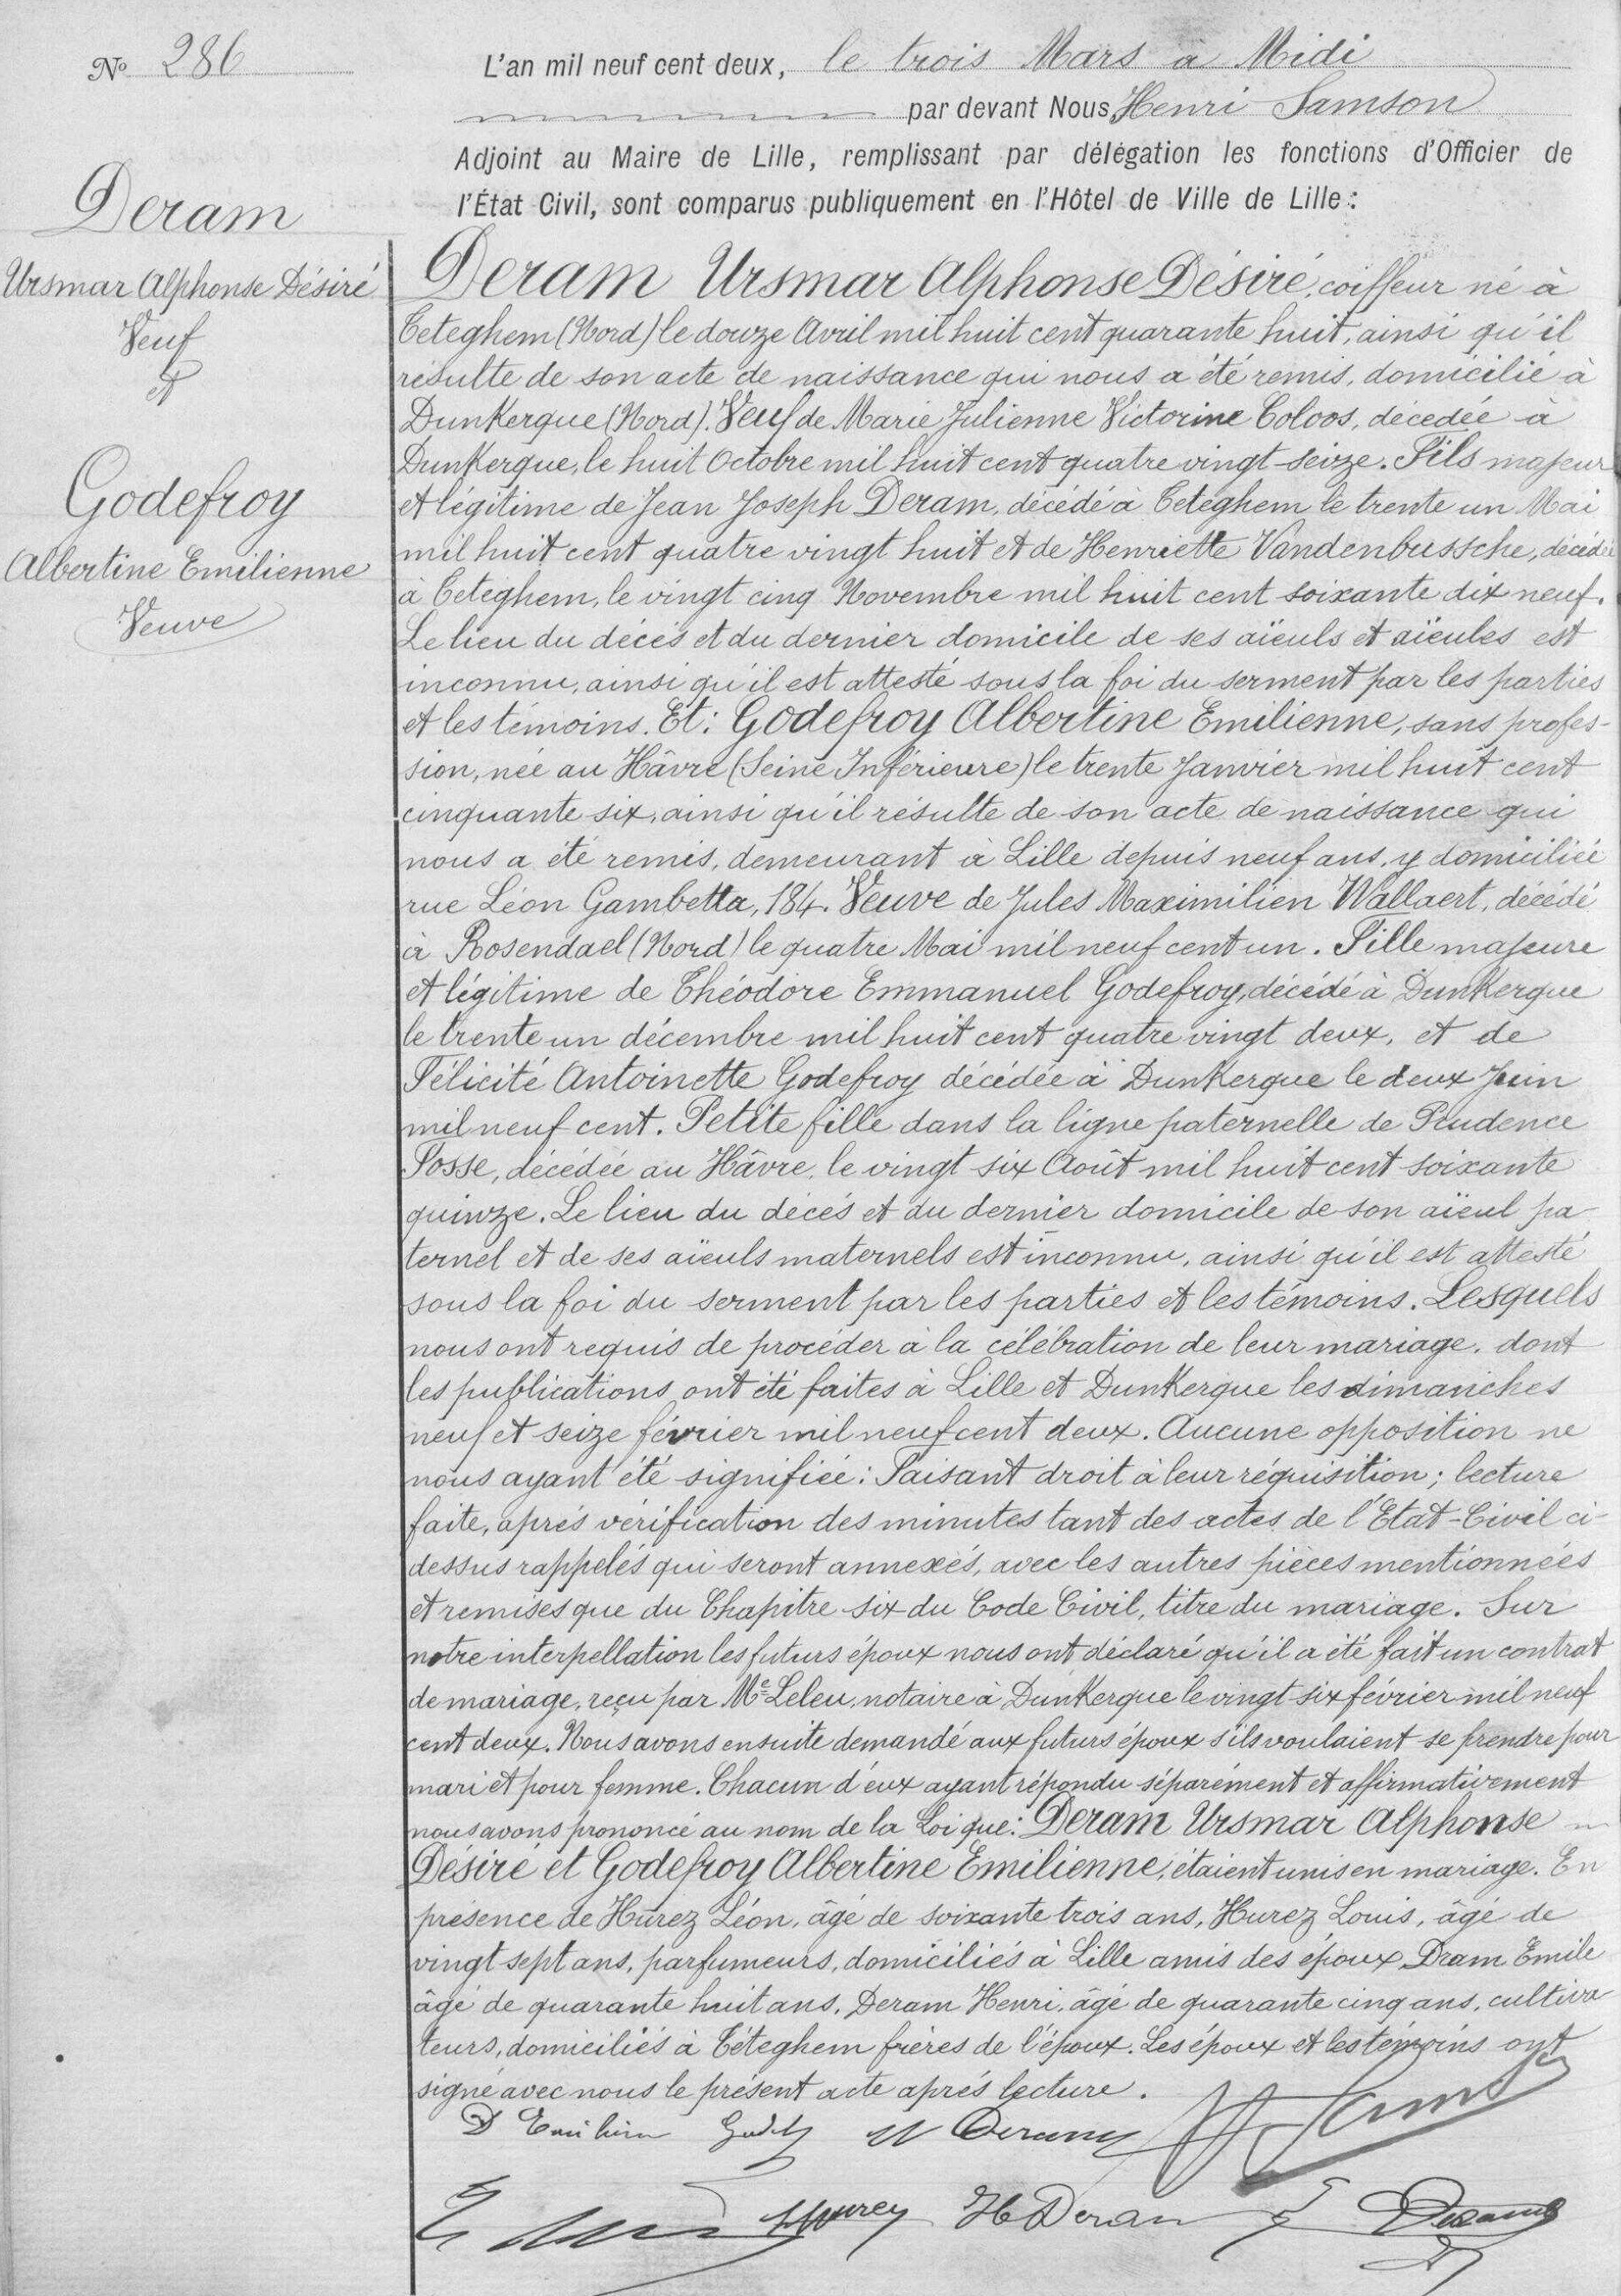 N° 286
L'an mil neuf cent deux, le trois Mars à Midi
par devant Nous, Henri Samson
Adjoint au Maire de Lille, remplissant par délégation les fonctions d'Officier de
l'État Civil, sont comparus publiquement en l'Hôtel de Ville de Lille :
Deram
Ursmar Alphonse Désiré
Veuf
et
Godefroy
Albertine Emilienne
Veuve
Deram Ursmar Alphonse Désiré, coiffeur né à
Ceteghem (Nord) le douze Avril mil huit cent quarante huit, ainsi qu'il
résulte de son acte de naissance qui nous a été remis, domicilié à
Dunkerque (Nord). Veuf de Marie Julienne Victorine Coloos, décedée à
Dunkerque, le huit Octobre mil huit cent quatre vingt seize. Fils majeur
et légitime de Jean Joseph Deram, décédé à Ceteghem le trente un Mai
mil huit cent quatre vingt huit et de Henriette Vandenbussche, décédée
à Ceteghem, le vingt cinq Novembre mil huit cent soixante dix neuf.
Le lieu du décès et du dernier domicile de ses aïeuls et aïeules est
inconnu, ainsi qu'il est attesté sous la foi du serment par les parties
et les témoins. Et : Godefroy Albertine Emilienne, sans profes-
sion, née au Hâvre (Seine Inférieure) le trente Janvier mil huit cent
cinquante six, ainsi qu'il résulte de son acte de naissance qui
nous a été remis, demeurant à Lille depuis neuf ans, y domiciliée
rue Léon Gambetta, 184. Veuve de Jules Maximilien Wallaert, décédé
à Rosendael (Nord) le quatre Mai mil neuf cent un. Fille majeure
et légitime de Théodore Emmanuel Godefroy, décédé à Dunkerque
le trente un décembre mil huit cent quatre vingt deux, et de
Félicité Antoinette Godefroy décédée à Dunkerque le deux Juin
mil neuf cent. Petite fille dans la ligne paternelle de Prudence
Fosse, décédée au Hâvre, le vingt six Août mil huit cent soixante
quinze. Le lieu du décès et du dernier domicile de son aïeul pa-
ternel et de ses aïeuls maternels est inconnu, ainsi qu'il est attesté
sous la foi du serment par les parties et les témoins. Lesquels
nous ont requis de procéder à la célébration de leur mariage, dont
les publications ont été faites à Lille et Dunkerque les dimanches
neuf et seize février mil neuf cent deux. Aucune opposition ne
nous ayant été signifiée : Faisant droit à leur réquisition ; lecture
faite, après vérification des minutes tant des actes de l'Etat-Civil ci-
dessus rappelés qui seront annexés, avec les autres pièces mentionnées
et remises que du Chapitre six du Code Civil, titre du mariage. Sur
notre interpellation les futurs époux nous ont déclaré qu'il a été fait un contrat
de mariage, reçu par Me Leleu, notaire à Dunkerque le vingt six février mil neuf
cent deux. Nous avons ensuite demandé aux futurs époux s'ils voulaient se prendre pour
mari et pour femme. Chacun d'eux ayant répondu séparément et affirmativement
nous avons prononcé au nom de la Loi que : Deram Ursmar Alphonse
Désiré et Godefroy Albertine Emilienne, étaient unis en mariage. En
présence de Hurez Léon, âgé de soixante trois ans, Hurez Louis, âgé de
vingt sept ans, parfumeurs, domiciliés à Lille amis des époux, Dram Emile
âgé de quarante huit ans, Deram Henri, âgé de quarante cinq ans, cultiva
teurs, domiciliés à Téteghem frères de l'époux. Les époux et les témoins ont
signé avec nous le présent acte après lecture.
U Deram
Hurez H Deram Deram